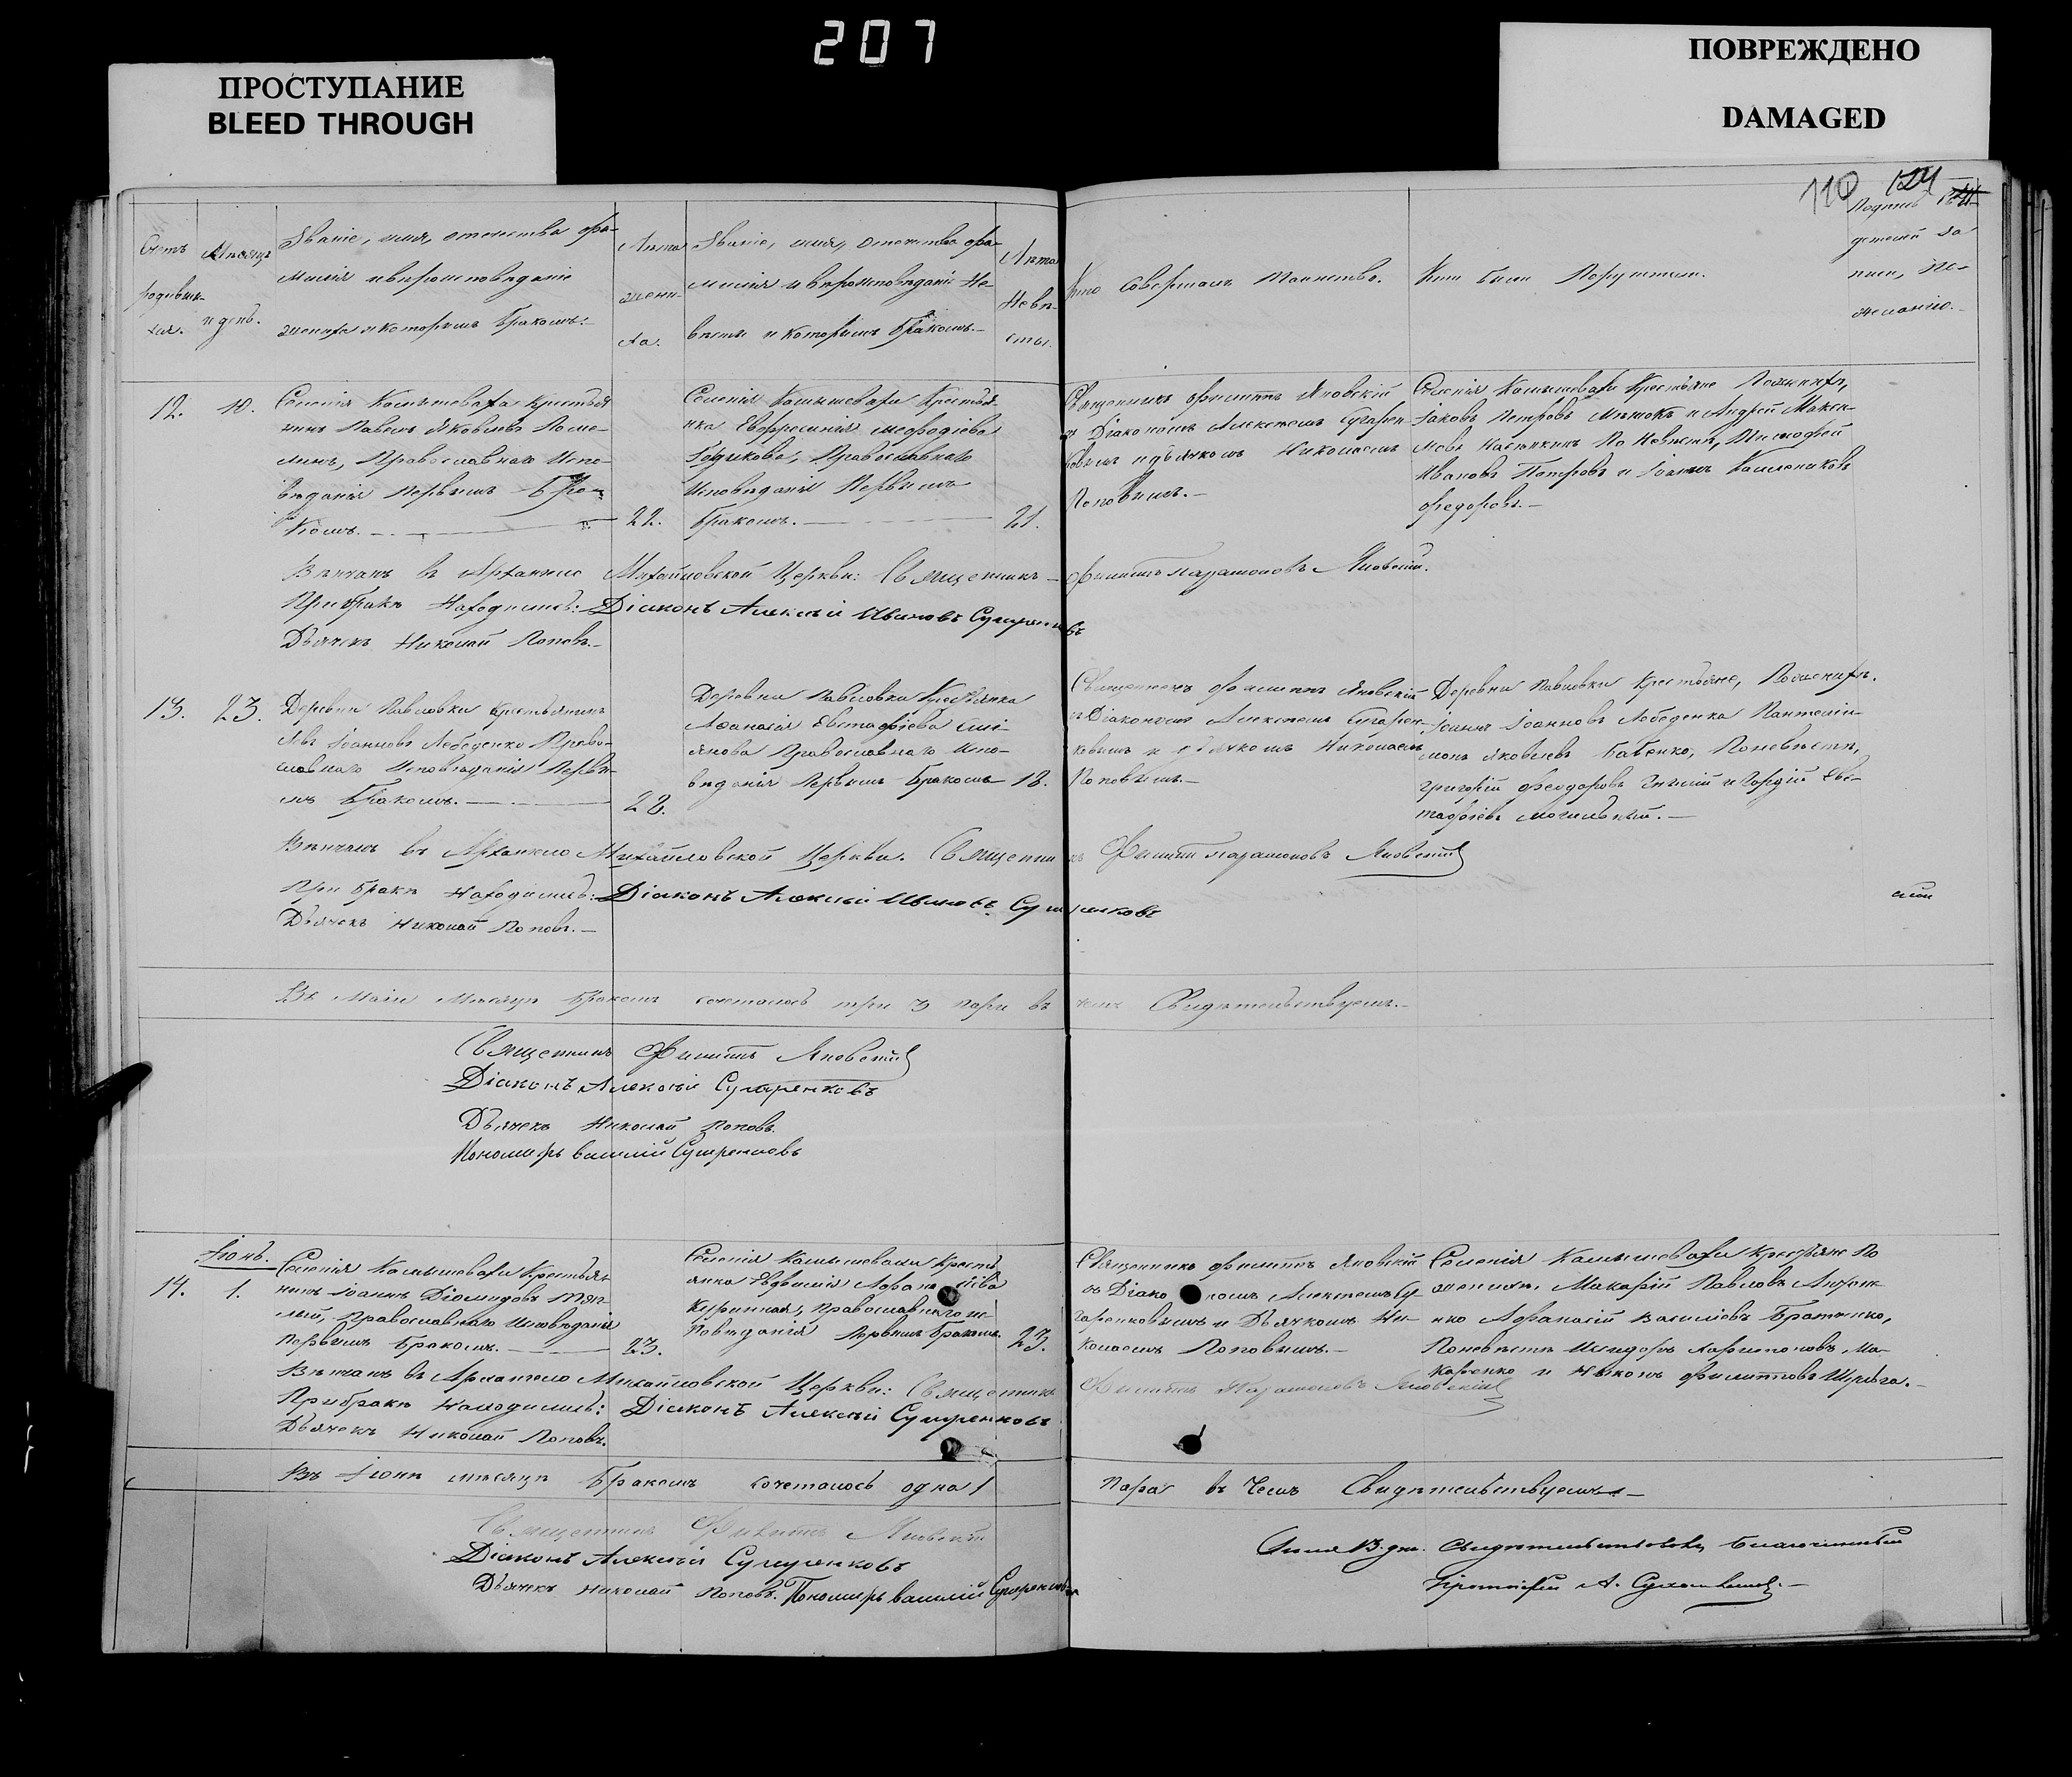 207
ПРОСТУПАНИЕ
BLEED THROUGH
ПОВРЕЖДЕНО
DAMAGED
110 124
Счетъ
родивших-
хся.
Месяцъ
и день.
Званіе, имя, отчество фа-
милія и вероисповеданіе
жениха и которымъ бракомъ:
Лета
жени-
ха.
Званіе, имя, отечество фа-
милія и вероисповеданіе Не-
весты и которымъ бракомъ.
Лета
Неве-
сты.
Кто совершалъ таинство.
Кто были Поручители.
12. 10.
Селенія Камышеваха крестья
нинъ Павелъ Яковлевъ
Православнаго Испо-
веданія Первымъ Бра-
комъ.
22.
Селенія Камышевахи Крестья-
нка Евфросинія Мефодіева
Православнаго
Исповеданія Первымъ
бракомъ.
21.
Священникъ Филиппъ Яновскій
съ Діакономъ Алексеемъ Сугарен
ковымъ и дьячкомъ Николаемъ
Поповымъ.
Селенія Камышевахи Крестьяне По женихе,
Іаковъ Петровъ и Андрей Макси-
мовъ По Невесте, Тимофей
Ивановъ Петровъ и Іоаннъ
Федоровъ.
Венчанъ въ Архангело Михайловской Церкви: Священникъ Филиппъ Парамоновъ Яновскій.
При браке Находились: Діаконъ Алексій Ивановъ Сугаренковъ
Дьячекъ Николай Поповъ.
13. 23.
Деревни Павловки Крестьянинъ
Левъ Іоанновъ Лебеденко Право-
славнаго Исповеданія Первы-
мъ Бракомъ.
22.
Деревни Павловки Крестьянка
Афанасія Евстафіева
Православнаго Испо-
веданія Первымъ Бракомъ 18.
Священникъ Филиппъ Яновскій
съ Діакономъ Алексеемъ Сугарен-
ковымъ и дьячкомъ Николаемъ
Поповымъ.
Деревни Павловки Крестьяне, По женихе.
Іоаннъ Іоанновъ Лебеденко Пантелеи-
монъ Яковлевъ Бабенко, По невесте,
Григорій Феодоровъ и Гордій Евс-
тафіевъ Могильный.
Венчанъ въ Архангело Михайловской Церкви. Священникъ Филиппъ Парамоновъ Яновскій
При браке Находились: Діаконъ Алексій Ивановъ Сугаренковъ
Дьячекъ Николай Поповъ.
Въ Маіи Месяце браком сочеталось три 3 пары въ чемъ Свидетельствуемъ.
Священникъ Филиппъ Яновскій
Діаконъ Алексій Сугаренковъ
Дьячекъ Николай Поповъ
Пономарь Василій Сугаренковъ
Іюнь.
14. 1.
Селенія Камышевахи Крестья-
нинъ Іоаннъ Діомидовъ
Православнаго Исповеданія
Первымъ Бракомъ.
23.
Селенія Камышевахи Крестья
янка Евфимія
Православнаго ис-
поведанія Первымъ Бракомъ. 23.
Священникъ Филиппъ Яновскій
съ Діакономъ Алексеемъ Су-
гаренковымъ и Дьячкомъ Ни-
колаемъ Поповымъ.
Селенія Камышевахи Крестьяне По
женихе, Макарій Павловъ
Афанасій Василіовъ
По невесте Исидоръ Харитоновъ Ма-
каренко и Филипповъ
Венчанъ въ Архангело Михайловской Церкви: Священникъ Филиппъ Парамоновъ Яновскій
При браке Находились: Діаконъ Алексій Сугаренковъ
Дьячекъ Николай Поповъ.
Въ Іюне месяце Бракомъ сочеталось одна 1 Пара въ Чемъ Свидетельствуемъ
Священникъ Филиппъ Яновскій
Діаконъ Алексій Сугаренковъ
Дьячекъ Николай Поповъ. Пономарь Василій Сугаренковъ
свидетельствовалъ Благочинный
Протоіерей А.